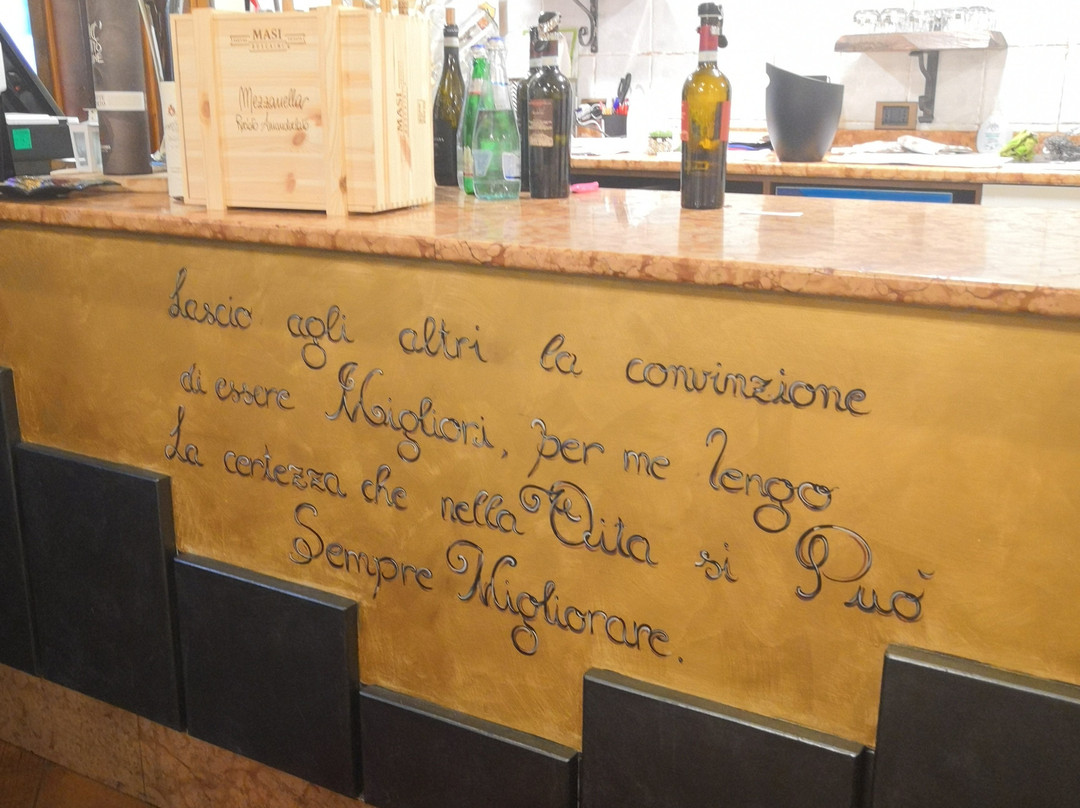 MASI
Mezzanella
MASI
Lascio agli altri la convinzione
di essere Migliori, per me Tengo
La certezza che nella Vita si Può
Sempre Migliorare.